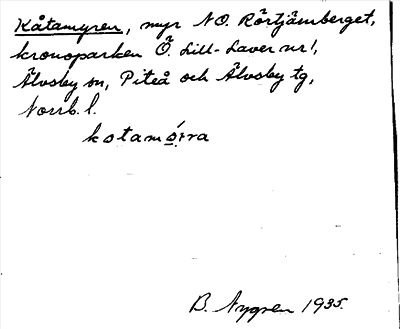 Kåtamyren, myr NO. Rörtjärnberget,
kronoparken Ö. Lill-Laver nr 1,
Älvsby sn, Piteå och Älvsby tg,
Norrb. l.
kotamo̱rra
B. Nygren 1935.